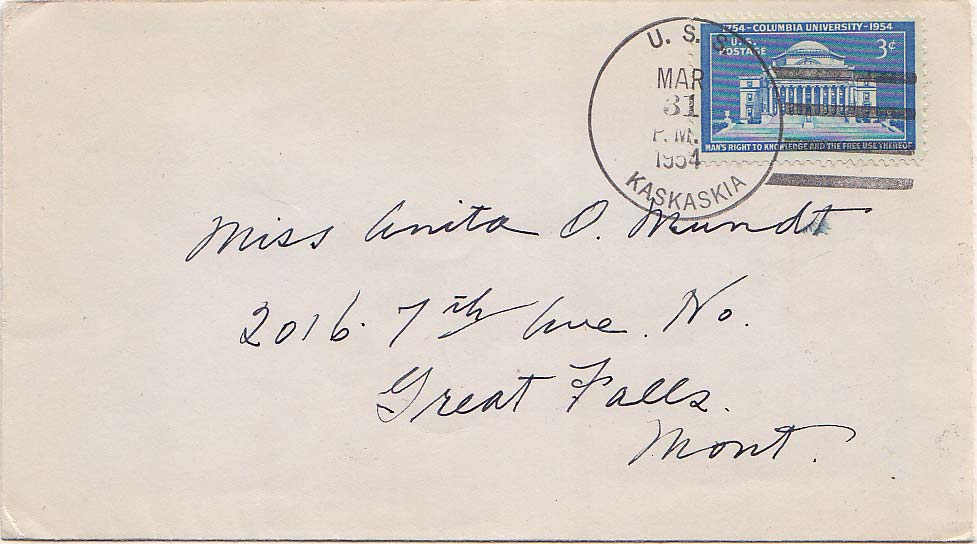 U. S. S.
MAR
31
P. M.
1954
KASKASKIA
1754 - COLUMBIA UNIVERSITY - 1954
U. S. POSTAGE
3¢
MAN'S RIGHT TO KNOWLEDGE AND THE FREE USE THEREOF
Miss Anita O. Mundt
2016. 7th Ave. No.
Great Falls.
Mont.